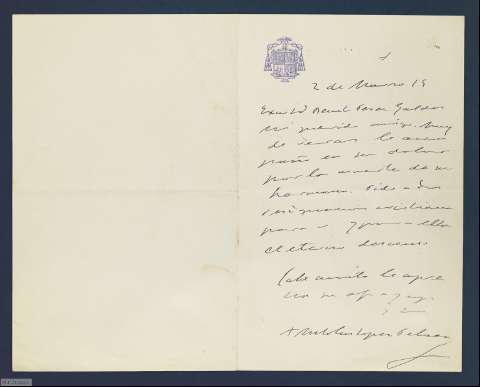 2 de Marzo 15
Excmo Sr Benito Perez Galdos
Mi querido amigo: Muy
de veras le acom
paño en su dolor
por la muerte de su
hermana. Pido a Dios
resignacion cristiana
para V. y para ella
el eterno descanso
Sabe cuanto le apre
cia su af. amigo